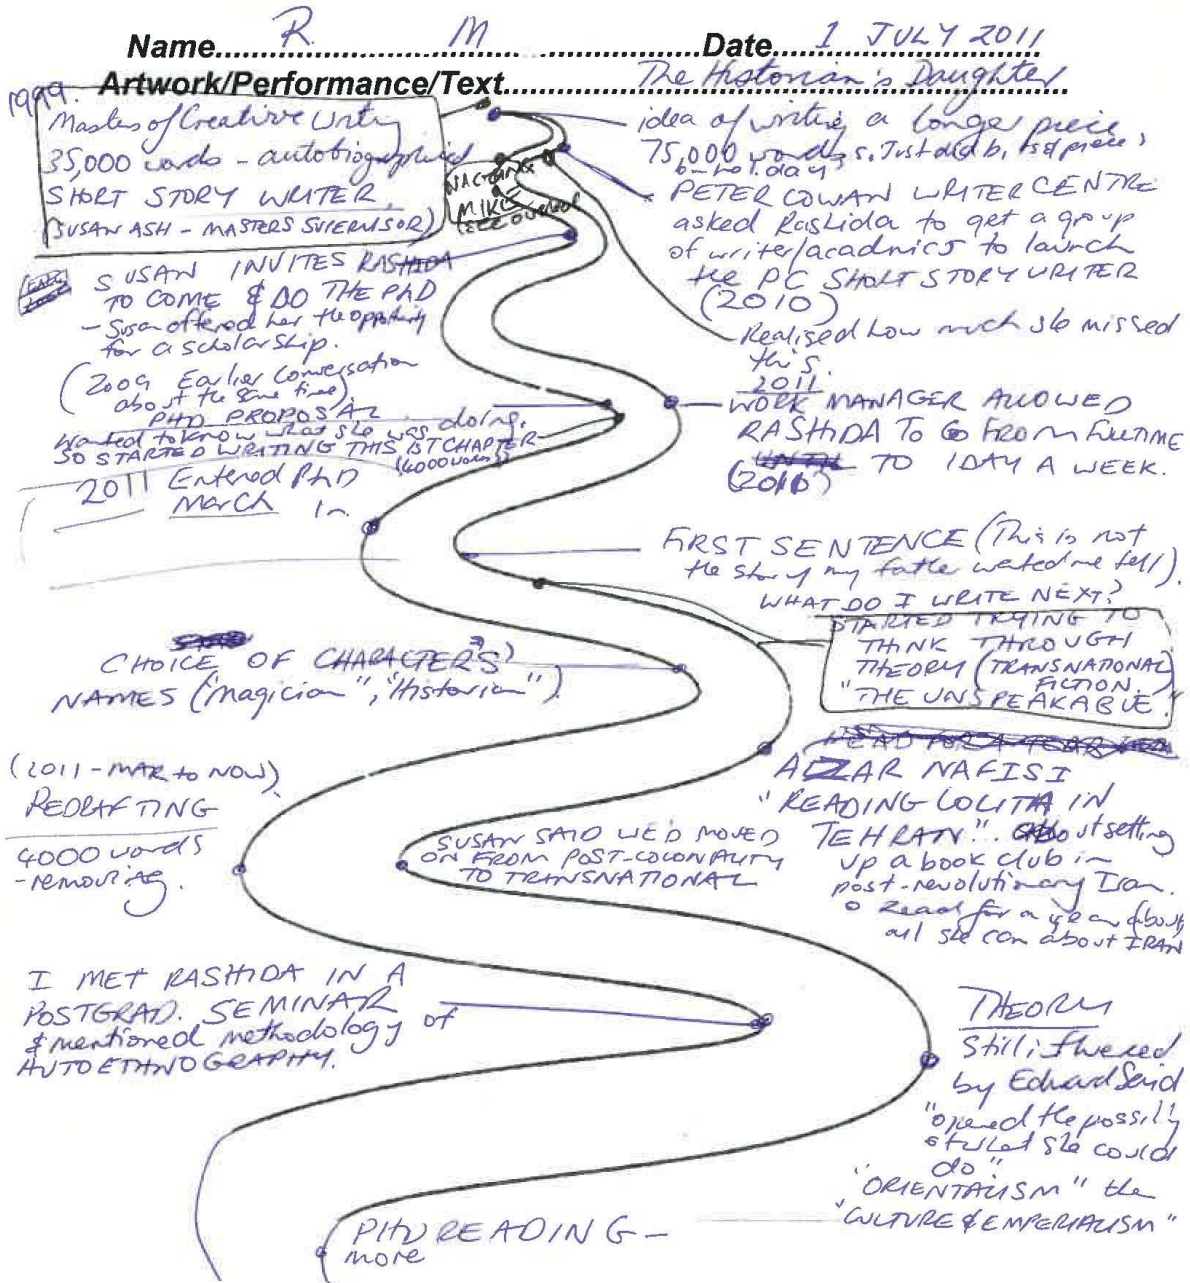 Name R. M Date 1 JULY 2011
Artwork/Performance/Text The Historian's Daughter
1999.
Masters of Creative Writing
35,000 words - autobiographical
SHORT STORY WRITER.
(SUSAN ASH - MASTERS SUPERVISOR)
MIKE
(SEE overleaf
idea of writing a longer piece,
75,000 words,
PETER COWAN WRITER CENTRE
asked Rashida to get a group
of writer/acadmics to launch
the PC SHORT STORY WRITER
(2010)
Realised how much she missed
this.
SUSAN INVITES RASHIDA
TO COME & DO THE PhD
- Susan offered her the opportunity
for a scholarship.
(2009 Earlier Conversation
about the same time).
PHD PROPOSAL
wanted to know what she was doing.
SO STARTED WRITING THIS 1ST CHAPTER
(4000 words)
2011
WORK MANAGER ALLOWED
RASHIDA TO GO FROM FULLTIME
TO 1 DAY A WEEK.
(2010)
2011 Entered PhD
March in
FIRST SENTENCE (This is not
the story my father wanted me tell).
WHAT DO I WRITE NEXT?
STARTED TRYING TO
THINK THROUGH
THEORY (TRANSNATIONAL
FICTION.)
"THE UNSPEAKABLE."
CHOICE OF CHARACTERS
NAMES ("Magician", "Historian")
READ FOR A YEAR
AZAR NAFISI
"READING LOLITA IN
TEHRAN". About setting
up a book club in
post-revolutionary Iran.
o Read for a year about
all she can about IRAN
(2011 - MAR to NOW)
REDRAFTING
4000 words
- removing.
SUSAN SAID WE'D MOVED
ON FROM POST-COLONIALITY
TO TRANSNATIONAL
I MET RASHIDA IN A
POSTGRAD. SEMINAR
& mentioned methodology of
AUTOETHNOGRAPHY.
THEORY
Still influenced
by Edward Said
"opened the possibility
of what she could
do"
"ORIENTALISM" the
"CULTURE & EMPERIALISM"
PHD READING -
more